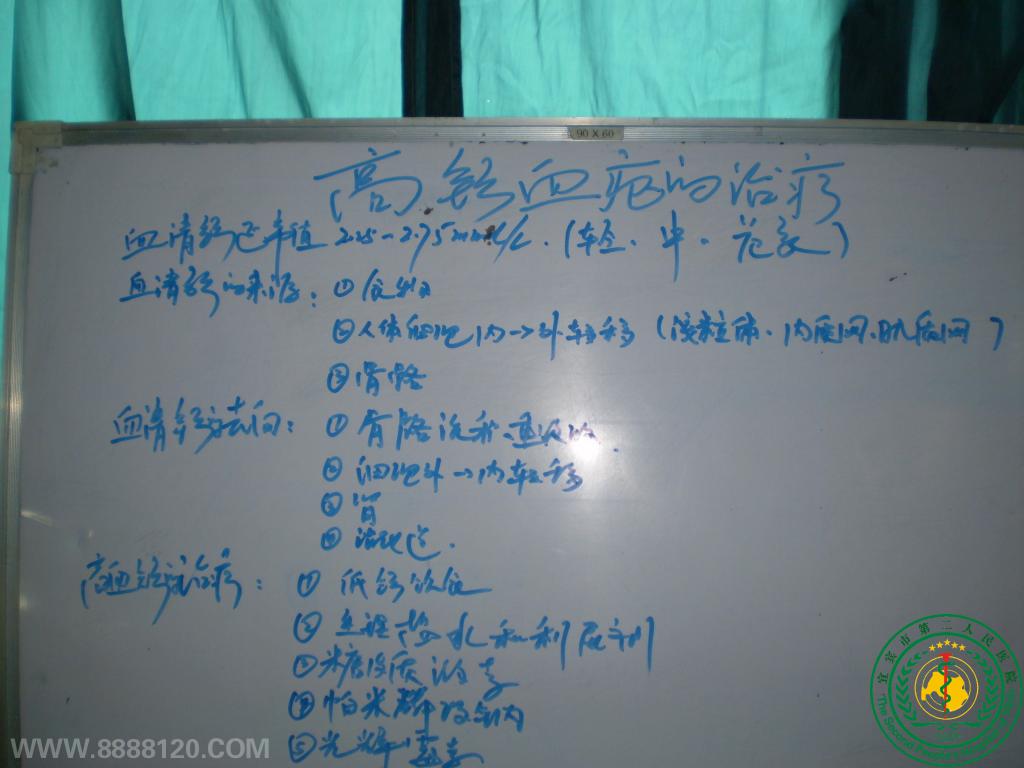 90 X 60
高钙血症的治疗
血清钙正常值 2.25-2.75mmol/L.(轻、中、危象)
血清钙的来源:① 食物
② 人体细胞内→外转移(线粒体、内质网、肌质网)
③ 骨骼
血清钙去向:① 骨骼
② 细胞外→内转移
③ 肾
④ 消化道.
高血钙症治疗:① 低钙饮食
② 生理盐水和利尿剂
③ 糖皮质激素
④ 帕米膦酸钠
⑤ 光辉霉素
宜宾市第二人民医院
The Second People's
WWW.8888120.COM